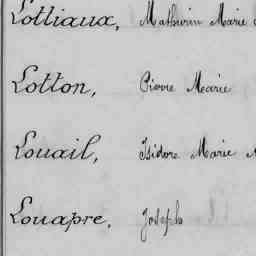 Lottiaux, Mathurin Marie
Lotton, Pierre Marie
Louail, Isidore Marie
Louapre, Joseph